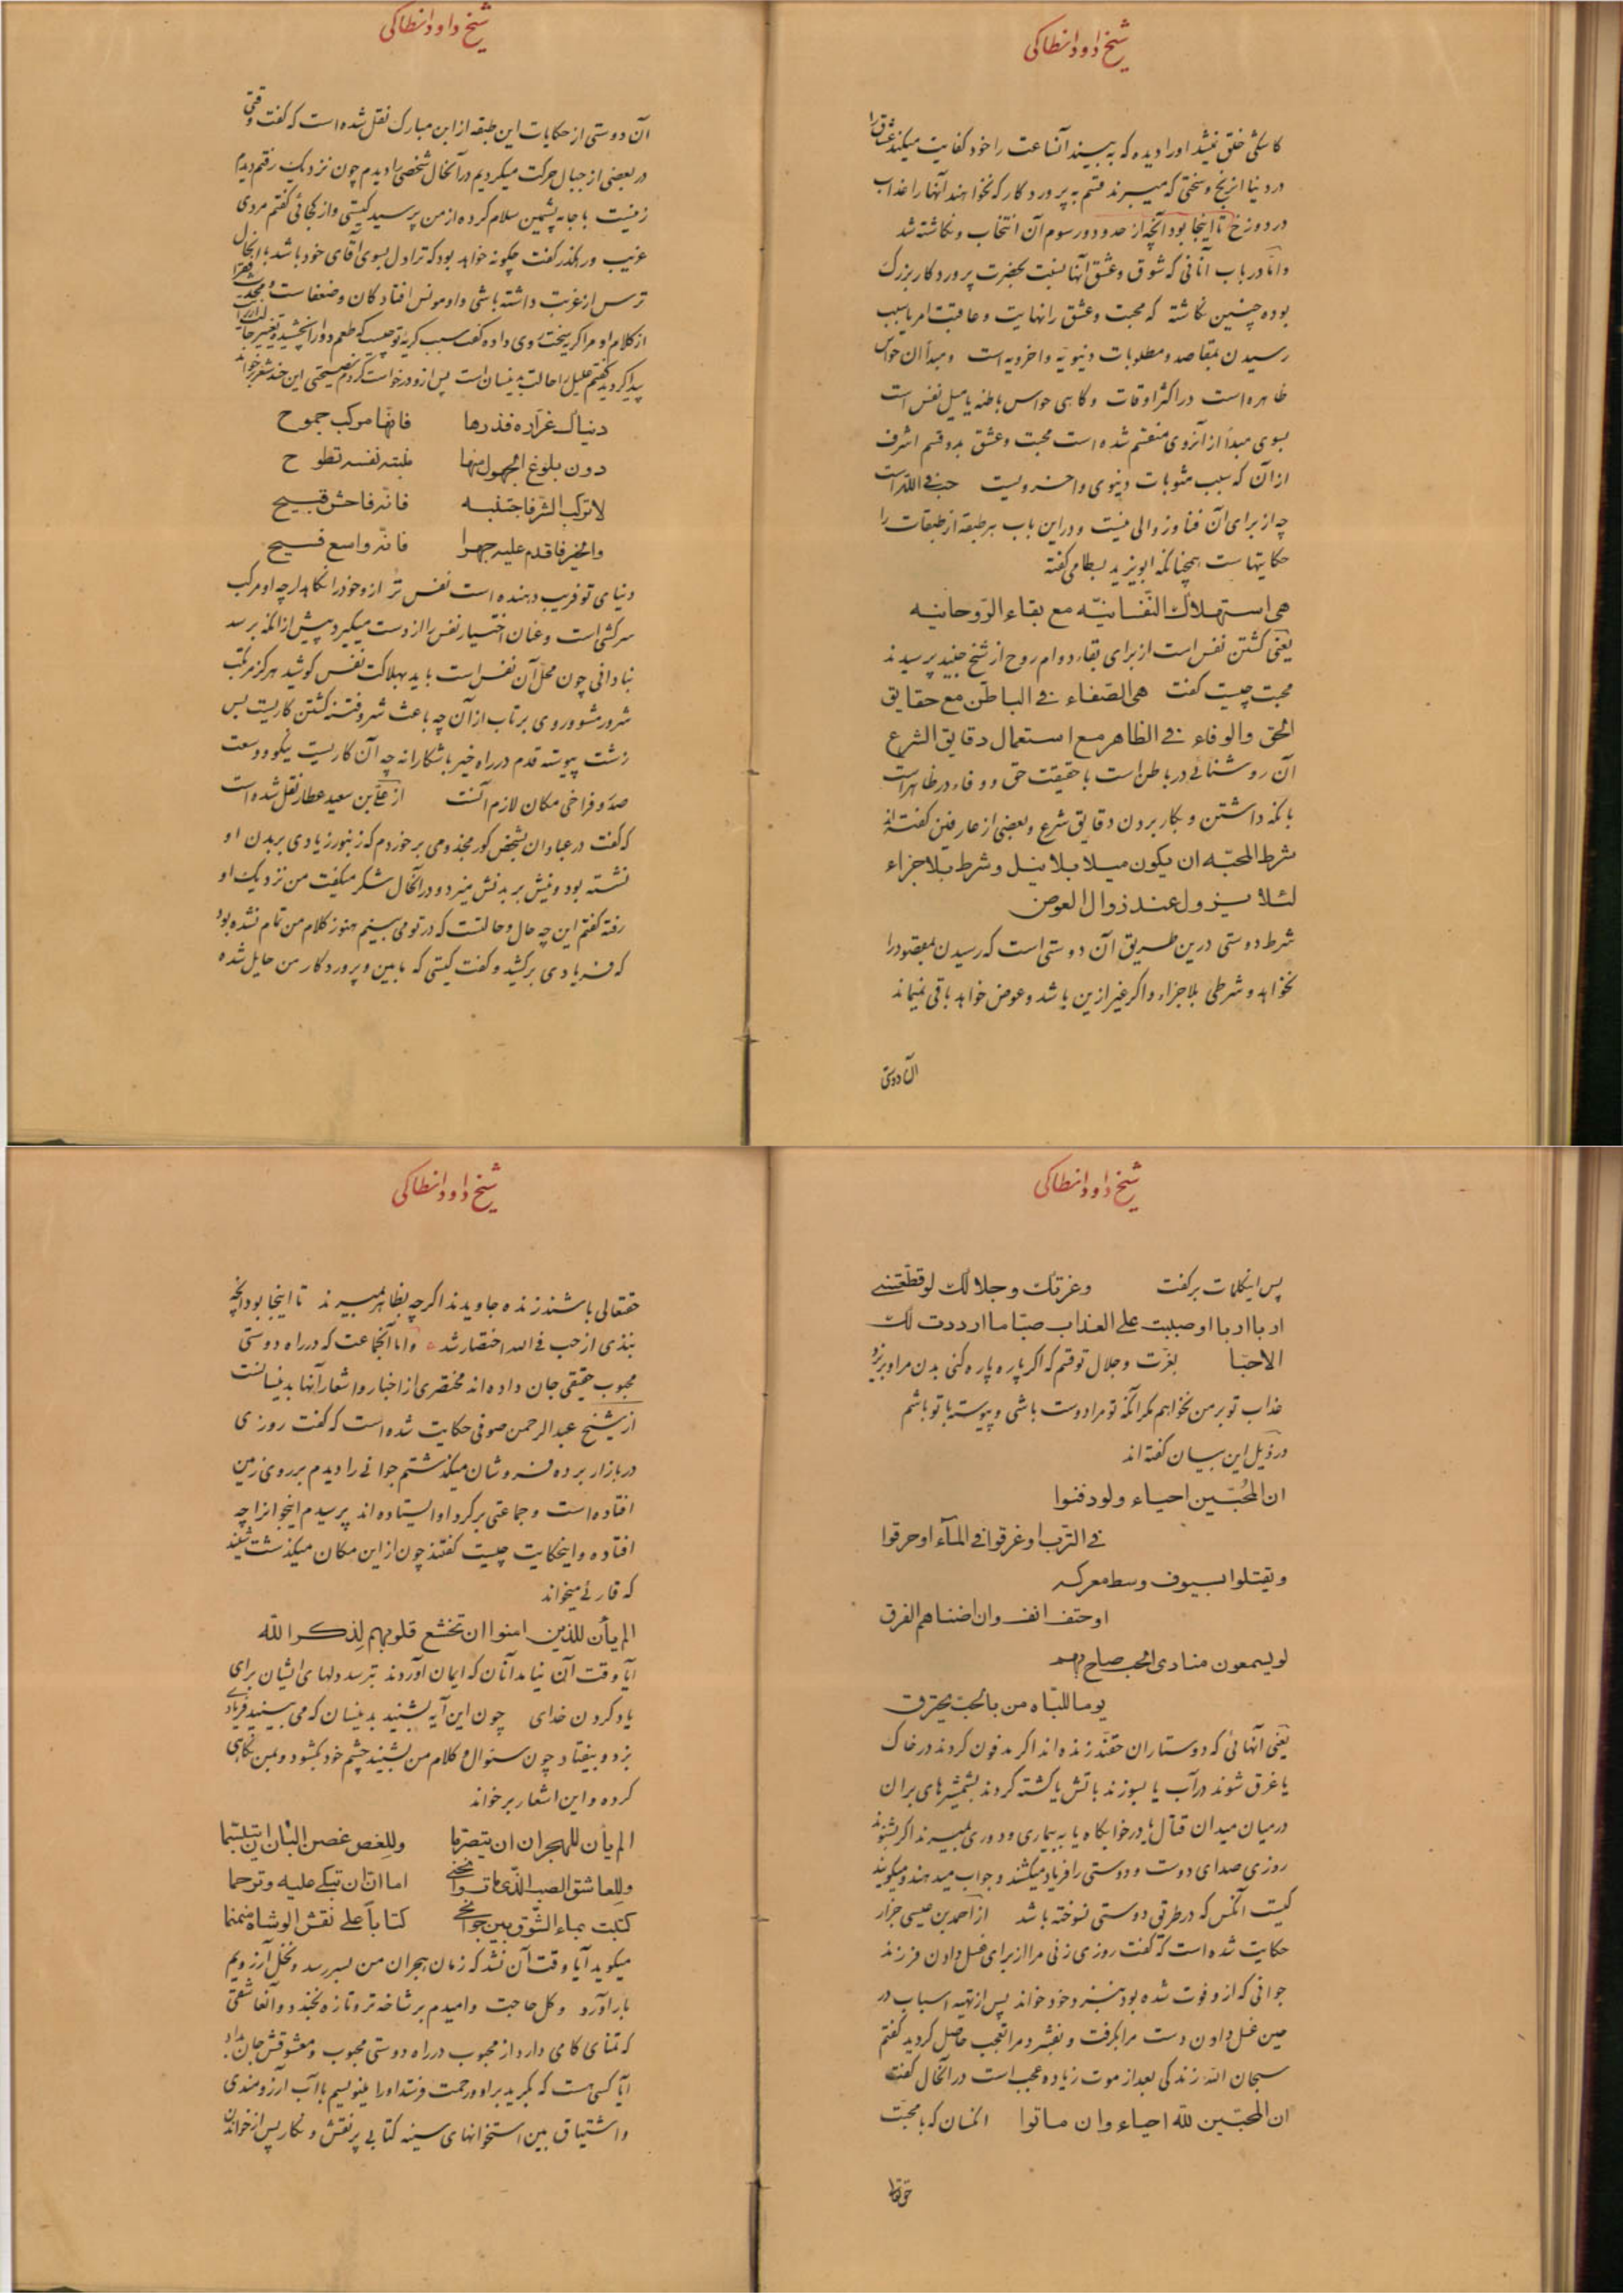 شیخ داود انطاکی
کاشکی خلق نمیشد او را دیده که به بیند آنساعت را خود کفایت میکند عشاق را
در دنیا از رنج و سختی که میبرند قسم به پروردکار که نخواهند آنها را عذاب
در دوزخ تا اینجا بود آنچه از حدود و رسوم آن انتخاب و نکاشته شد
و امّا در باب آنانی که شوق و عشق آنها نسبت بحضرت پروردکار بزرک
بوده چنین نکاشته که محبت و عشق را نهایت و عاقبت امر یا بسبب
رسیدن بمقاصد و مطلوبات دنیویه و اخرویه است و مبدأ آن حواس
ظاهره است در اکثر اوقات و کاهی حواس باطنه یا میل نفس است
بسوی مبدأ از آنروی منقسم شده است محبت و عشق بدو قسم اشرف
از آن که سبب مثوبات دنیوی و اخرویست حب فی الله است
چه از برای آن فنا و زوالی نیست و در این باب هر طبقه از طبقات را
حکایتهاست همچنانکه ابو یزید بسطامی کفته
هی استهلاک النّفسانیّه مع بقاء الرّوحانیه
یعنی کشتن نفس است از برای بقاء دوام روح از شیخ جنید پرسیدند
محبت چیست کفت هی الصّفاء فی الباطن مع حقایق
الحق والوفاء فی الظاهر مع استعمال دقایق الشرع
آن روشنائی در باطن است با حقیقت حق و وفاء در ظاهر است
با نکه داشتن و بکار بردن دقایق شرع و بعضی از عارفین کفته اند
شرط المحبّه ان یکون میلا بلا نیل و شرط بلا جزاء
لئلا یزول عند زوال العوض
شرط دوستی درین طریق آن دوستی است که رسیدن بمقصود را
نخواهد و شرطی بلا جزاء و اکر غیر ازین باشد و عوض خواهد باقی نمیماند
آن دوستی
شیخ داود انطاکی
آن دوستی از حکایات این طبقه از ابن مبارک نقل شده است که کفت وقتی
در بعضی از جبال حرکت میکردیم در آنحال شخصی را دیدم چون نزدیک رفتم دیدم
زنیست با جامه پشمین سلام کرده از من پرسید کیستی و از کجائی کفتم مردی
غریب و رهکذر کفت چکونه خواهد بود که ترا دل بسوی آقای خود باشد با اینحال
ترس از غربت داشته باشی و او مونس افتادکان و ضعفاست و محدث فقرا
از کلام او مرا کریه سخت روی داده کفت سبب کریه تو چیست که طعم دوا را نچشیده تغییر حالت
پیدا کردید کفتم علیل را حالت بدینسان است پس ازو درخواست کردم نصیحتی این چند شعر برخواند
دنیاک غرّاره فذرها فانها مرکب جموح
دون بلوغ الجهول منها منیته نفسه تطوح
لا ترکب الشّر فاجتنبه فانّه فاحش قبیح
والخیر فاقدم علیه جهرا فانّه واسع فسیح
دنیای تو فریب دهنده است نفس ترا ازو خود را نکاهدار چه او مرکب
سرکشی است و عنان اختیار نفس را از دست میکیرد پیش از آنکه برسد
نادانی چون محل آن نفس است باید بهلاکت نفس کوشید هرکز مرتکب
شرور مشو و روی بر تاب از آن چه باعث شر و فتنه کشتن کاریست بس
زشت پیوسته قدم در راه خیر باش کارانه چه آن کاریست نیکو و وسعت
صدّ و فراخی مکان لازم آنست از علی بن سعید عطار نقل شده است
که کفت در عبادان بشخص کور مجذومی برخوردم که زنبور زیادی بر بدن او
نشسته بود و نیش بر بدنش میزد و در آنحال شکر میکفت من نزدیک او
رفته کفتم این چه حال و حالتست که در تو می بینم هنوز کلام من تمام نشده بود
که فریادی بر کشید و کفت کیستی که مابین و پروردکار من حایل شده
شیخ داود انطاکی
پس اینکلمات بر کفت وعزتک وجلالک لو قطّعتنی
اربا اربا او صببت علی العذاب صبّا ما ازددت لک
الاحبّا بعزّت و جلال تو قسم که اکر پاره پاره کنی بدن مرا و بریزد
عذاب تو بر من نخواهم مکر آنکه تو مرا دوست باشی و پیوسته با تو باشم
در ذیل این بیان کفته اند
ان المحبّین احیاء ولو دفنوا
فی الترب او غرقوا فی المآء او حرقوا
و یقتلوا بسیوف وسط معرکه
او حتف انف وان اضناهم الفرق
لو یسمعون منادی الحب صاح بهم
یوما للبّاه من بالحبّ یحترق
یعنی آنهائی که دوستاران حقند زنده اند اکر مدفون کردند در خاک
یا غرق شوند در آب یا بسوزند باتش یا کشته کردند بشمشیرهای بران
در میان میدان قتال یا در خوابکاه یا به بیماری و دوری بمیرند اکر بشنوند
روزی صدای دوست و دوستی را فریاد میکشند و جواب میدهند و میکویند
کیست آنکس که در طرق دوستی نسوخته باشد از احمد بن عیسی خراز
حکایت شده است که کفت روزی زنی مرا از برای غسل دادن فرزند
جوانی که ازو فوت شده بود بنزد خود خواند پس از تهیه اسباب در
حین غسل دادن دست مرا بکرفت و بفشرد مرا تعجب حاصل کردید کفتم
سبحان الله زندکی بعد از موت زیاده عجب است در آنحال کفت
ان المحبّین لله احیاء وان ماتوا آنکسان که با محبّت
حقتعالی
شیخ داود انطاکی
حقتعالی باشند زنده جاویدند اکرچه بظاهر بمیرند تا اینجا بود آنچه
نبذی از حب فی الله اختصار شد و اما آنجماعت که در راه دوستی
محبوب حقیقی جان داده اند مختصری از اخبار و اشعار آنها بدینسانست
از شیخ عبد الرحمن صوفی حکایت شده است که کفت روزی
در بازار برده فروشان میکذشتم جوانی را دیدم بر روی زمین
افتاده است و جماعتی بر کرد او ایستاده اند پرسیدم اینجوانرا چه
افتاده و اینحکایت چیست کفتند چون از این مکان میکذشت شنید
که قارئی میخواند
الم یأن للذین امنوا ان تخشع قلوبهم لذکر الله
آیا وقت آن نیامد آنان که ایمان آوردند بترسد دلهای ایشان برای
یاد کردن خدای چون این آیه بشنید بدینسان که می بینید فریادی
بزد و بیفتاد چون سئوال و کلام من بشنید چشم خود بکشود و بمن نکاهی
کرده و این اشعار بر خواند
الم یأن للهجران ان یتصرّما وللغصن غصن البان ان یتبسّما
وللعاشق الصب الّذی مات وانحنی اما ان ان تبکی علیه وترحما
کتبت بماء الشّوق بین جوانحی کتاباً علی نقش الوشاه منمنما
میکوید آیا وقت آن نشد که زمان هجران من بسر رسد و نخل آرزویم
بار آورد و کل حاجت و امیدم بر شاخه تر و تازه بخندد و آنعاشقی
که تمنای کامی دارد از محبوب در راه دوستی محبوب و معشوقش جان بداد
آیا کسی هست که بکرید بر او و رحمت فرستد او را بنویسیم با آب آرزومندی
و اشتیاق بین استخوانهای سینه کتابی پر نقش و نکار پس از خواندن